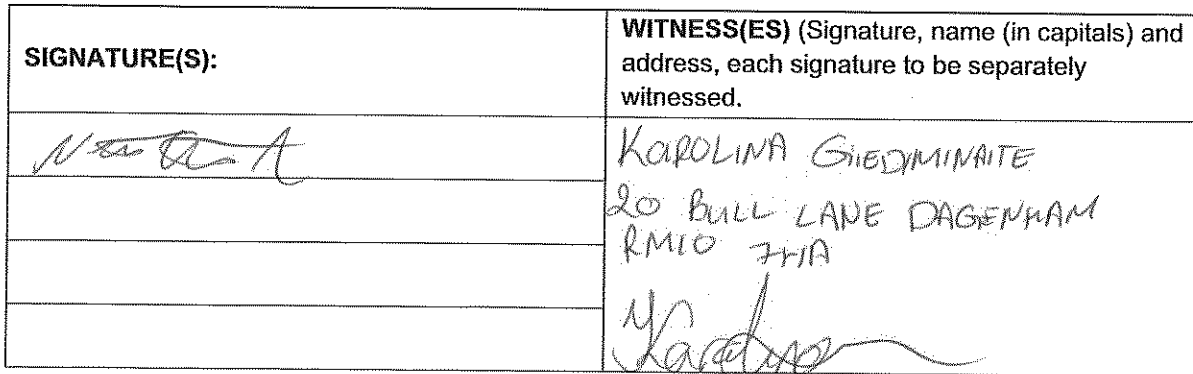 SIGNATURE(S):
WITNESS(ES) (Signature, name (in capitals) and
address, each signature to be separately
witnessed.
KAROLINA GIEDIMINAITE
20 BULL LANE DAGENHAM
RM10 7HA